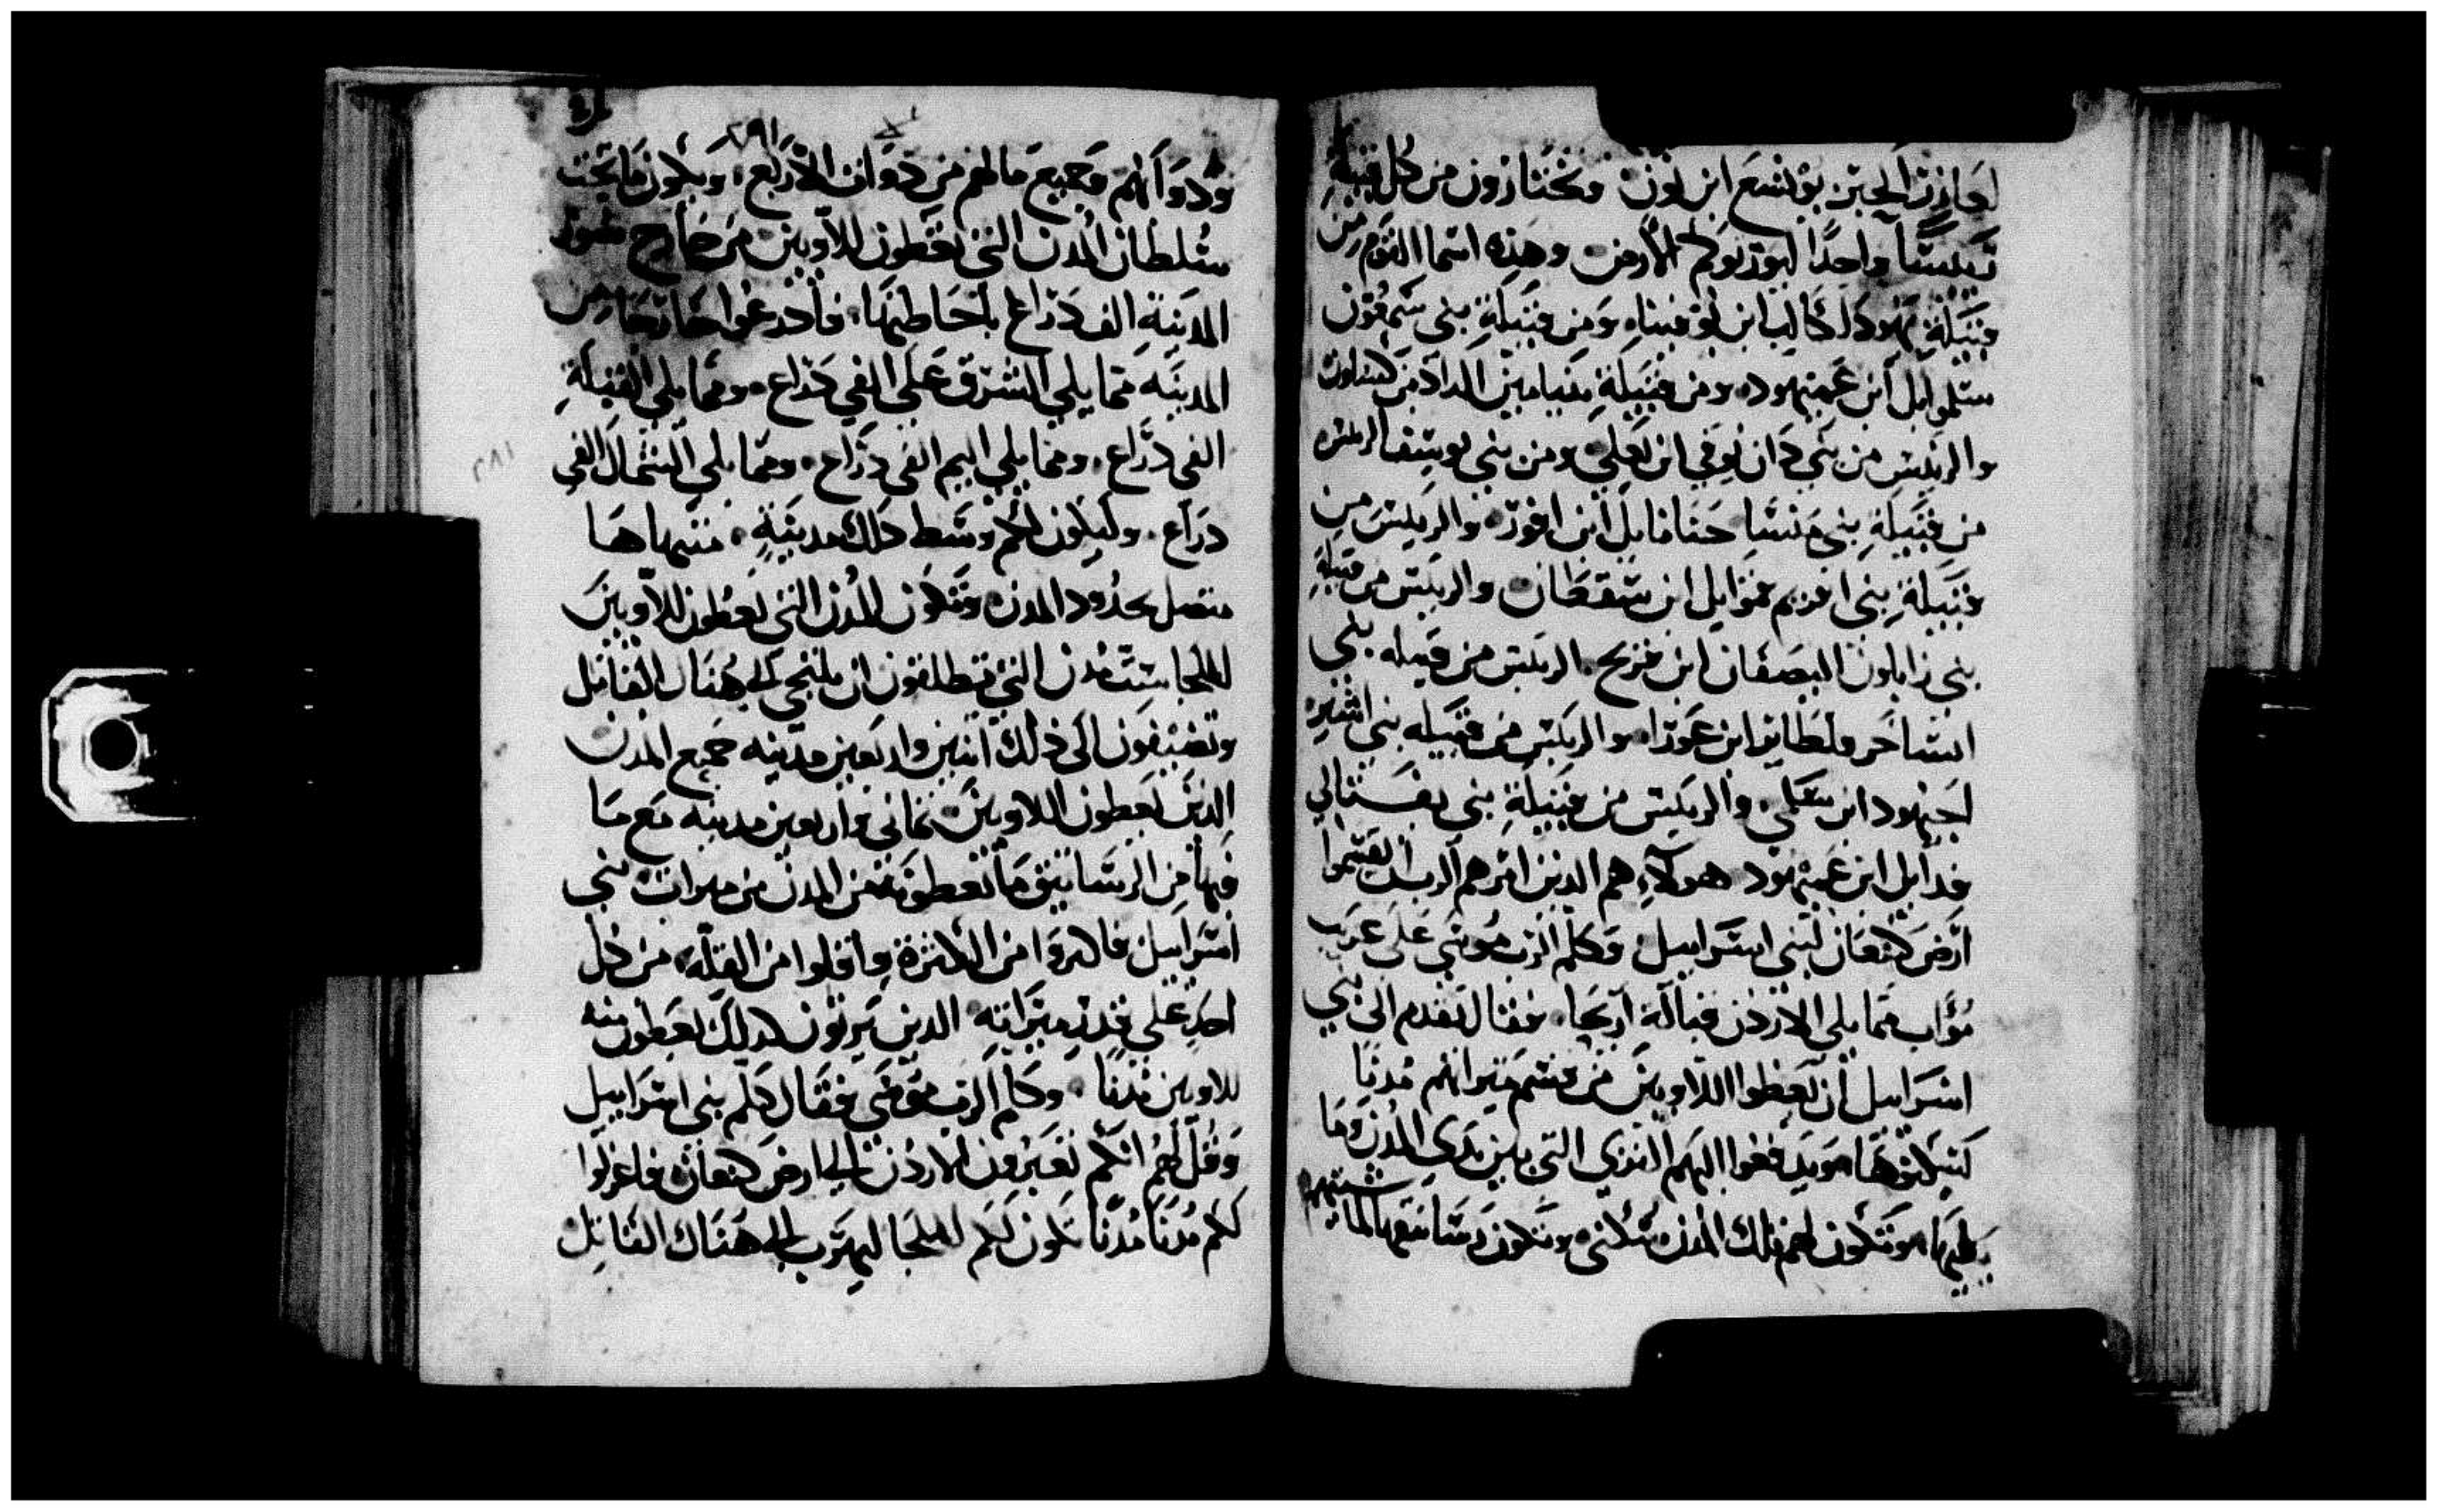 لعازرُ الحبر يوشع ابن نون وتختارون من كل قبيلة
رييسًا واحدًا ليورثوكم الأرض وهذه اسما القوم من
قبيلة يهودا كالب ابن يوفيناه ومن قبيلة بني شمعون
سلموايل ابن عميهود ومن قبيلة بنيامين الداد من كسلون
والرييس من بني دان بوقي ابن يعلي ومن بني يوسف الرييس
من قبيلة بني منسا حناناييل ابن افود والرييس من
قبيلة بني افريم قموايل ابن سقطان والرييس من قبيلة
بني زابلون اليصفان ابن فرنح الرييس من قبيله بني
اشاخر فلطايل ابن عوزا والرييس من قبيله بني اشير
احيهود ابن سلمي والرييس من قبيلة بني نفتالي
فدايل ابن عميهود هولاء هم الدين امرهم الرب ان يقسموا
ارض كنعان لبني اسراييل وكلم الرب موسى على عربب
مواب مما يلي الاردن قبالة اريحا فقال تقدم الى بني
اسراييل ان يعطوا اللاويين من قسم ميراثهم مدنًا
ليسكنوها ويدفعوا اليهم القرى التي بين يدي المدن وما
يليها وتكون لهم تلك المدن سكنى وتكون رساتيقها لماشيتهم
ودوابهم وجميع مالهم من دوات الاربع ويكون ما تحت
سلطان المدن التي تعطون للاويين من خارج سور
المدينة الف دراع باحاطتها فادرعوا خارجا من
المدينه مما يلي الشرق على الفي دراع ومما يلي القبلة
الفي دراع ومما يلي اليم الفي دراع ومما يلي الشمال الفي
دراع وليكون لكم وسط دلك مدينة منتهاها
متصل بحدود المدن وتكون المدن التي تعطون للاويين
للملجا ستت مدن التي تنطلقون ان يلتجي الى هناك القاتل
وتضيفون الى ذلك اتنين واربعين مدينه جميع المدن
الدين تعطون اللاويين تماني واربعين مدينه مع ما
فيها من الرساتيق ما تعطونه من المدن من ميرات بني
اسراييل فاكتروا من الكترة واقلوا من القلة من كل
احد على قدر ميراته الدين يرتون كدلك يعطون منه
للاويين مدنًا وكلم الرب موسى فقال كلم بني اسراييل
وقل لهم انكم تعبرون الاردن الى ارض كنعان فاعزلوا
لكم مدنًا مدنًا تكون لكم للملجا ليهرب الى هناك القاتل
٢٨١